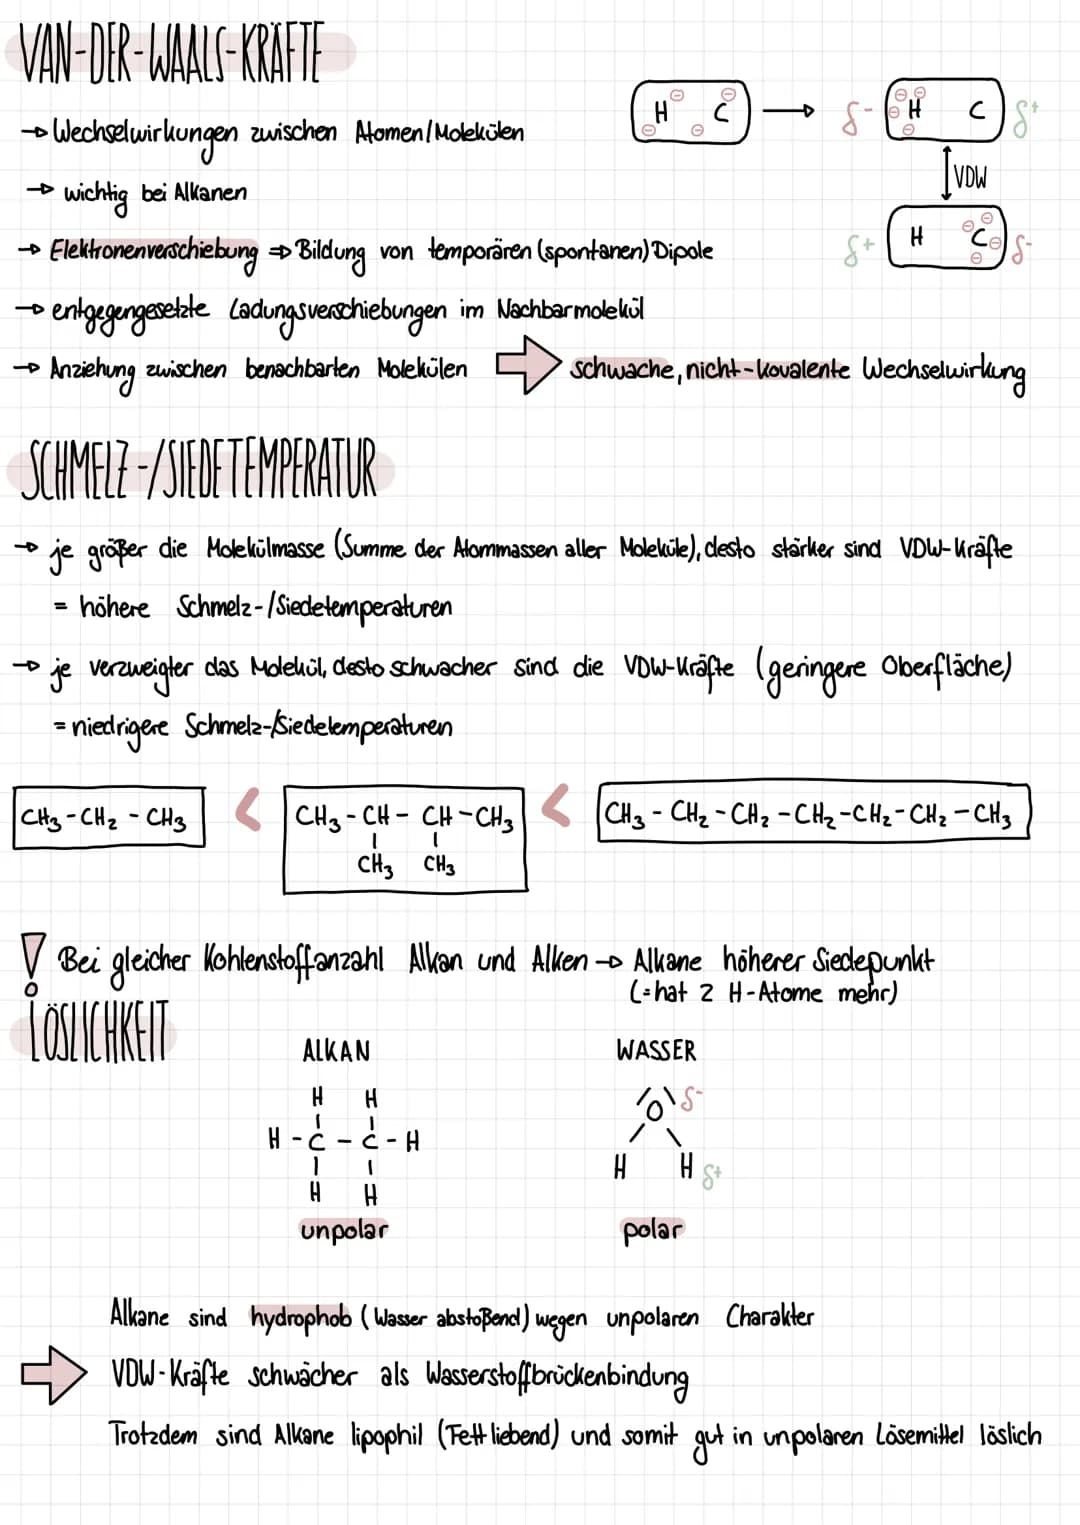 VAN-DER-WAALS-KRÄFTE
→ Wechselwirkungen zwischen Atomen/Molekülen
→ wichtig bei Alkanen
→ Elektronenverschiebung ⇒ Bildung von temporären (spontanen) Dipole
→ entgegengesetzte Ladungsverschiebungen im Nachbarmolekül
→ Anziehung zwischen benachbarten Molekülen ⇨ schwache, nicht-kovalente Wechselwirkung
H C → δ- H C δ+
VDW
δ+ H C δ-
SCHMELZ-/SIEDETEMPERATUR
→ je größer die Molekülmasse (Summe der Atommassen aller Moleküle), desto stärker sind VDW-Kräfte
= höhere Schmelz-/Siedetemperaturen
→ je verzweigter das Molekül, desto schwacher sind die VDW-Kräfte (geringere Oberfläche)
= niedrigere Schmelz-/Siedetemperaturen
CH3 - CH2 - CH3 < CH3 - CH - CH - CH3 < CH3 - CH2 - CH2 - CH2 - CH2 - CH2 - CH3
CH3 CH3
! Bei gleicher Kohlenstoffanzahl Alkan und Alken → Alkane höherer Siedepunkt
(= hat 2 H-Atome mehr)
LÖSLICHKEIT
ALKAN WASSER
H H
H - C - C - H
H H
O δ-
H H δ+
unpolar polar
Alkane sind hydrophob (Wasser abstoßend) wegen unpolaren Charakter
⇨ VDW-Kräfte schwächer als Wasserstoffbrückenbindung
Trotzdem sind Alkane lipophil (Fett liebend) und somit gut in unpolaren Lösemittel löslich